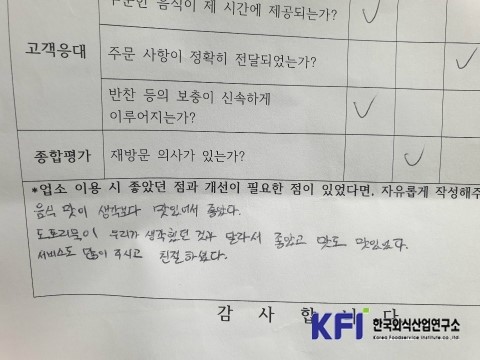 주문한 음식이 제 시간에 제공되는가?
고객응대
주문 사항이 정확히 전달되었는가?
반찬 등의 보충이 신속하게
이루어지는가?
종합평가
재방문 의사가 있는가?
*업소 이용 시 좋았던 점과 개선이 필요한 점이 있었다면, 자유롭게 작성해주
음식 맛이 생각보다 맛있어서 좋았다.
도토리묵이 우리가 생각했던 것과 달라서 좋았고 맛도 맛있었다.
서비스도 많이 주시고 친절하셨다.
감 사 합 니 다
KFI 한국외식산업연구소
Korea Foodservice Institute co.,ltd